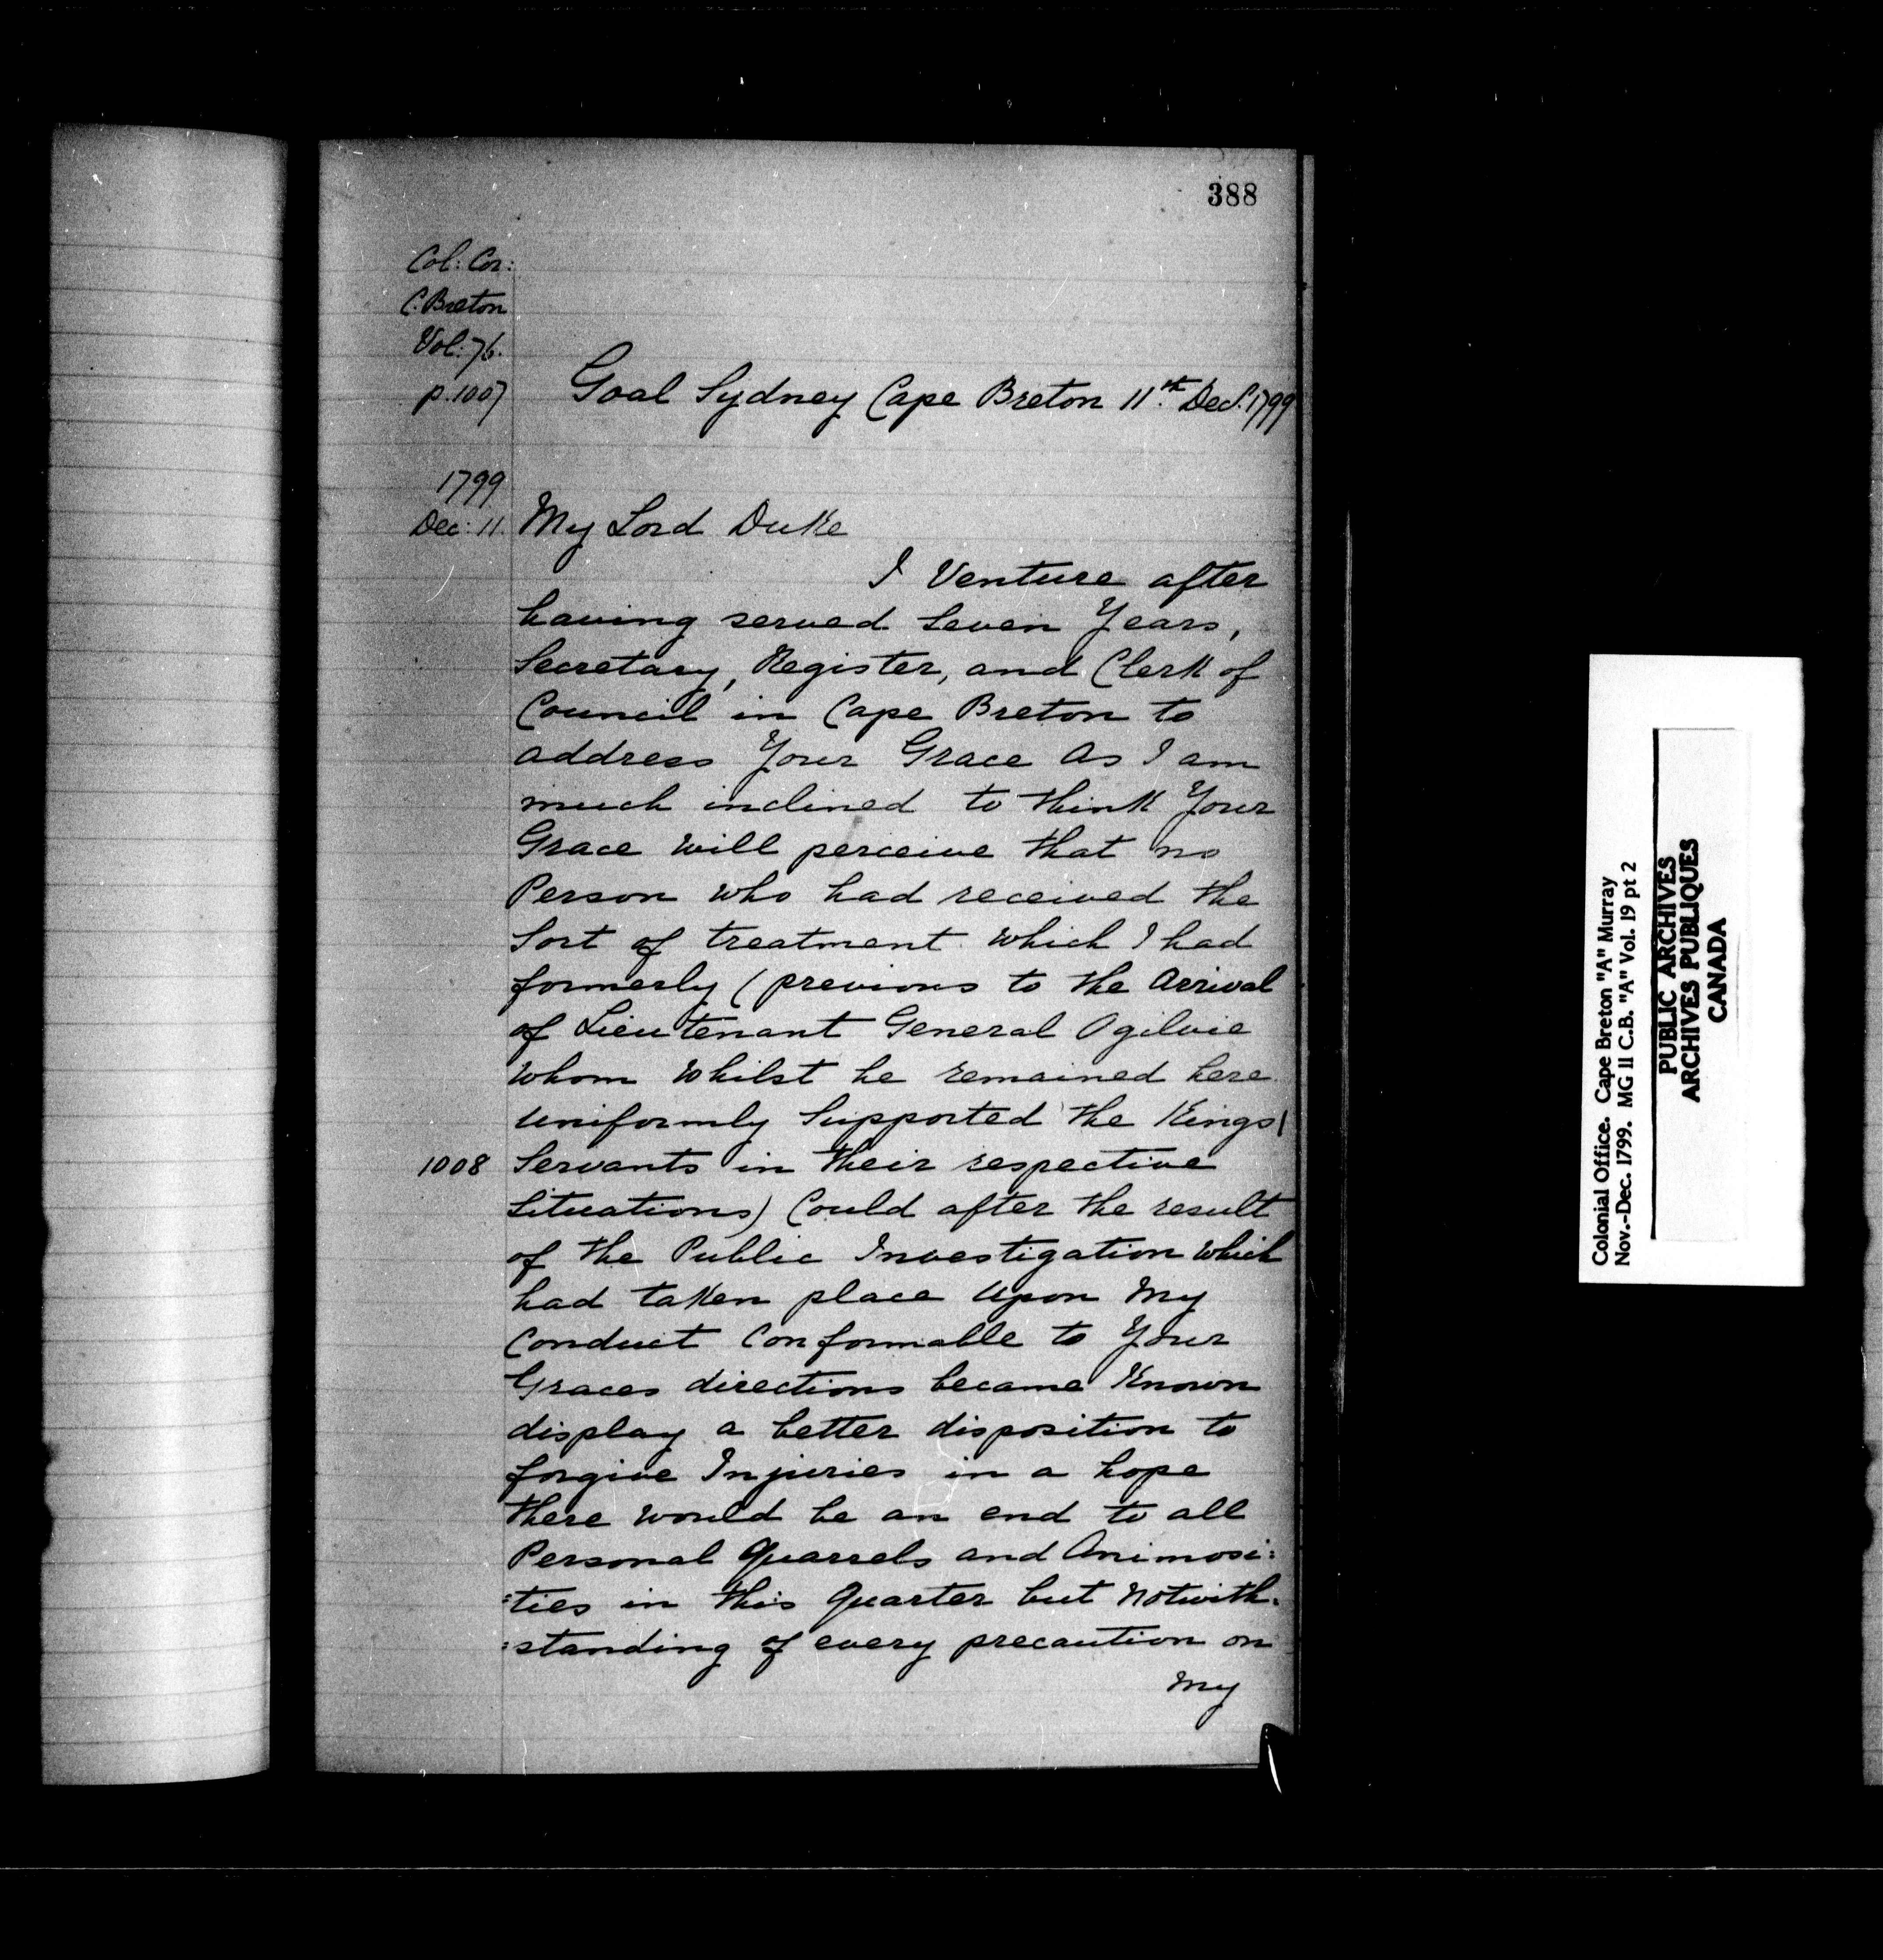 388
Col: Cor:
C. Breton
Vol: 76.
p. 1007
Goal Sydney Cape Breton 11th Decr. 1799
1799
Dec: 11.
My Lord Duke
I Venture after
having served Seven Years,
Secretary, Register, and Clerk of
Council in Cape Breton to
address Your Grace As I am
much inclined to think Your
Grace will perceive that no
Person who had received the
Sort of treatment which I had
formerly (previous to the Arrival
of Lieutenant General Ogilvie
whom whilst he remained here
uniformly Supported the Kings
1008
Servants in their respective
Situations) Could after the result
of the Public Investigation which
had taken place upon my
Conduct Conformable to Your
Graces directions became Known
display a better disposition to
forgive Injuries in a hope
there would be an end to all
Personal Quarrels and Animosi:
:ties in this Quarter but Notwith.
:standing of every precaution on
my
Colonial Office. Cape Breton "A" Murray
Nov.-Dec. 1799. MG 11 C.B. "A" Vol. 19 pt 2
PUBLIC ARCHIVES
ARCHIVES PUBLIQUES
CANADA